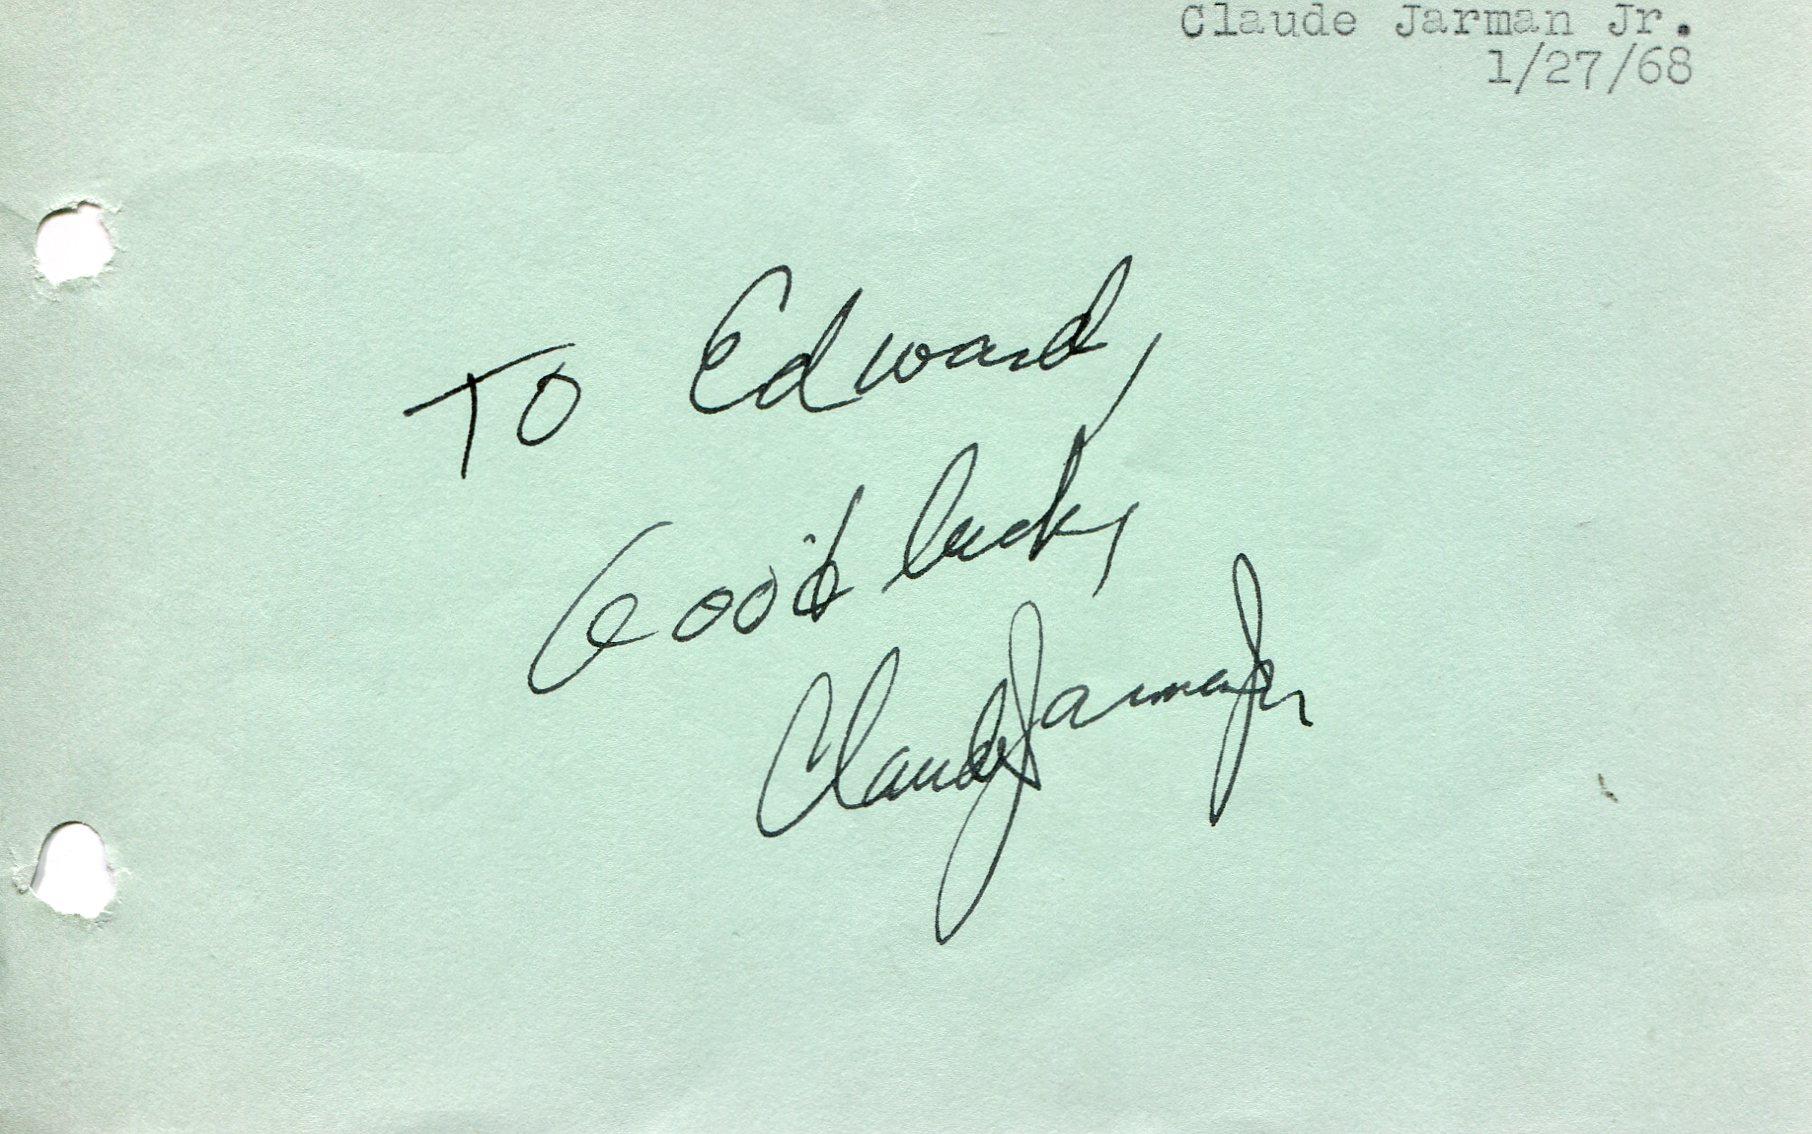 Claude Jarman Jr.
1/27/68
To Edward,
Good luck,
Claude Jarman Jr